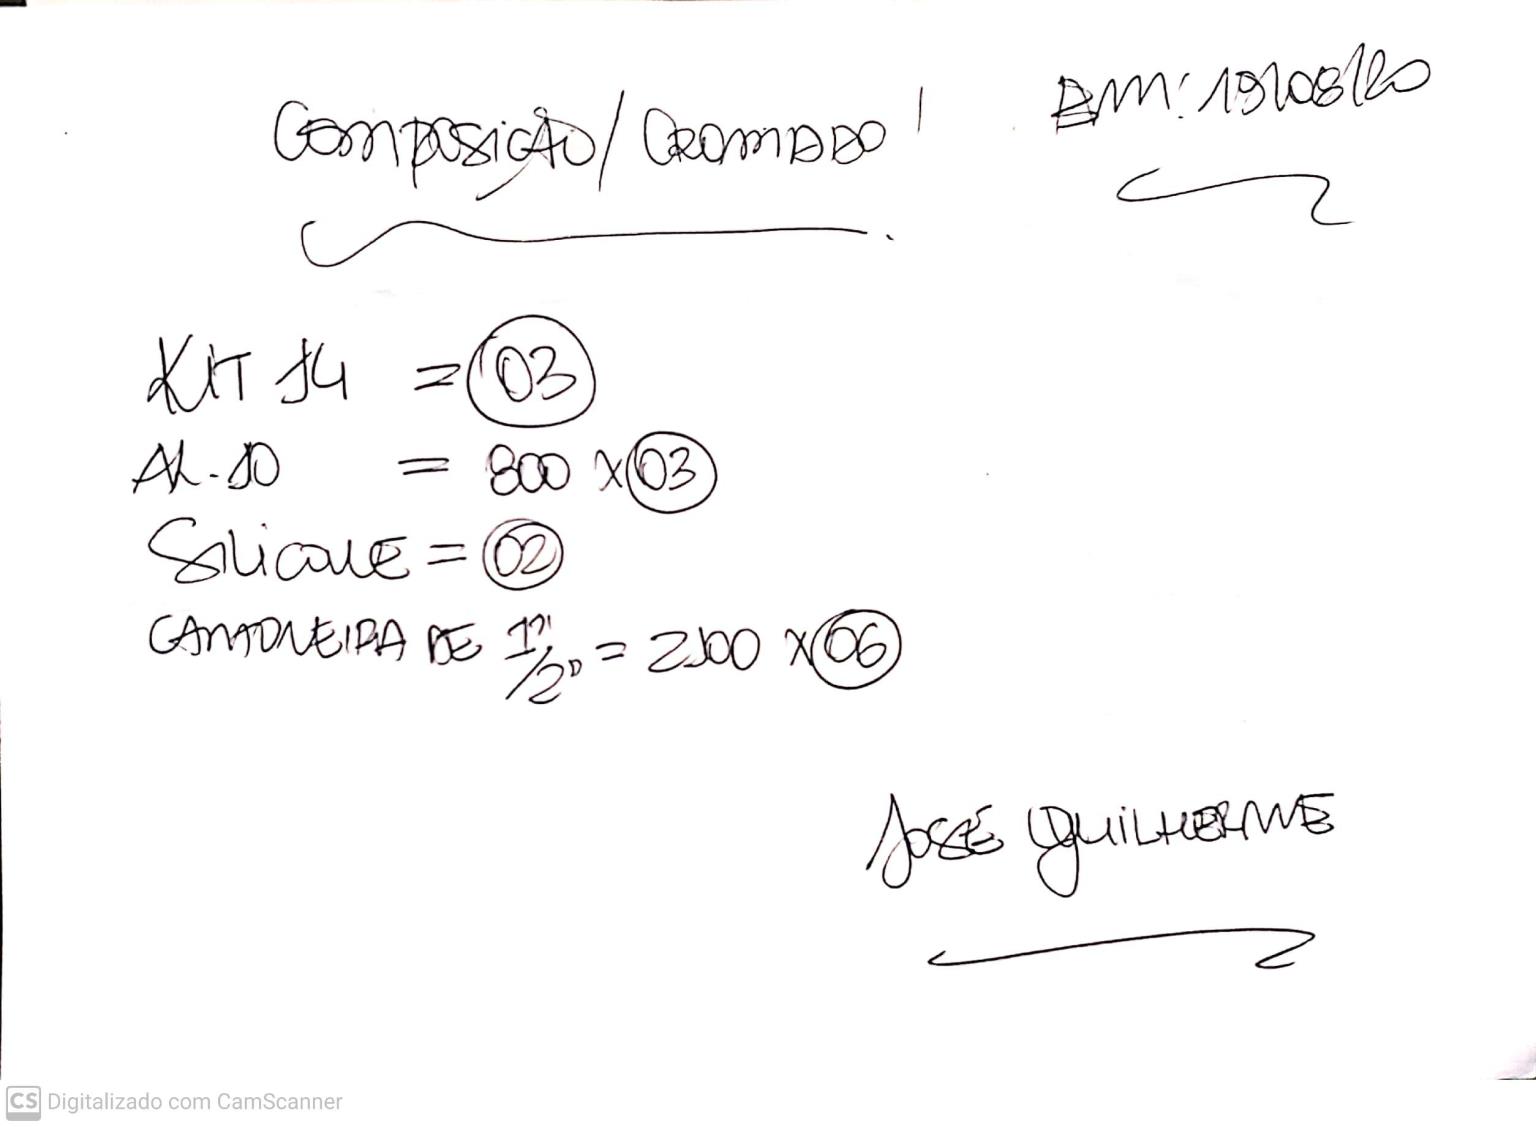 Composição / Cromado
Em: 19/08/20
KIT 14 = 03
AL-10 = 800 x 03
Silicone = 02
CANTONEIRA DE 1" 1/2" = 2100 x 06
José Guilherme
CS Digitalizado com CamScanner